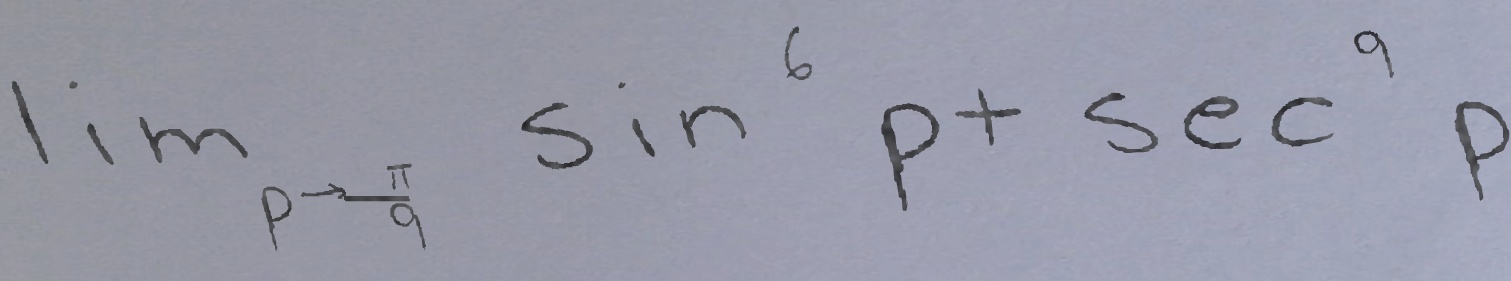 lim p→π/9 sin^6 p + sec^9 p